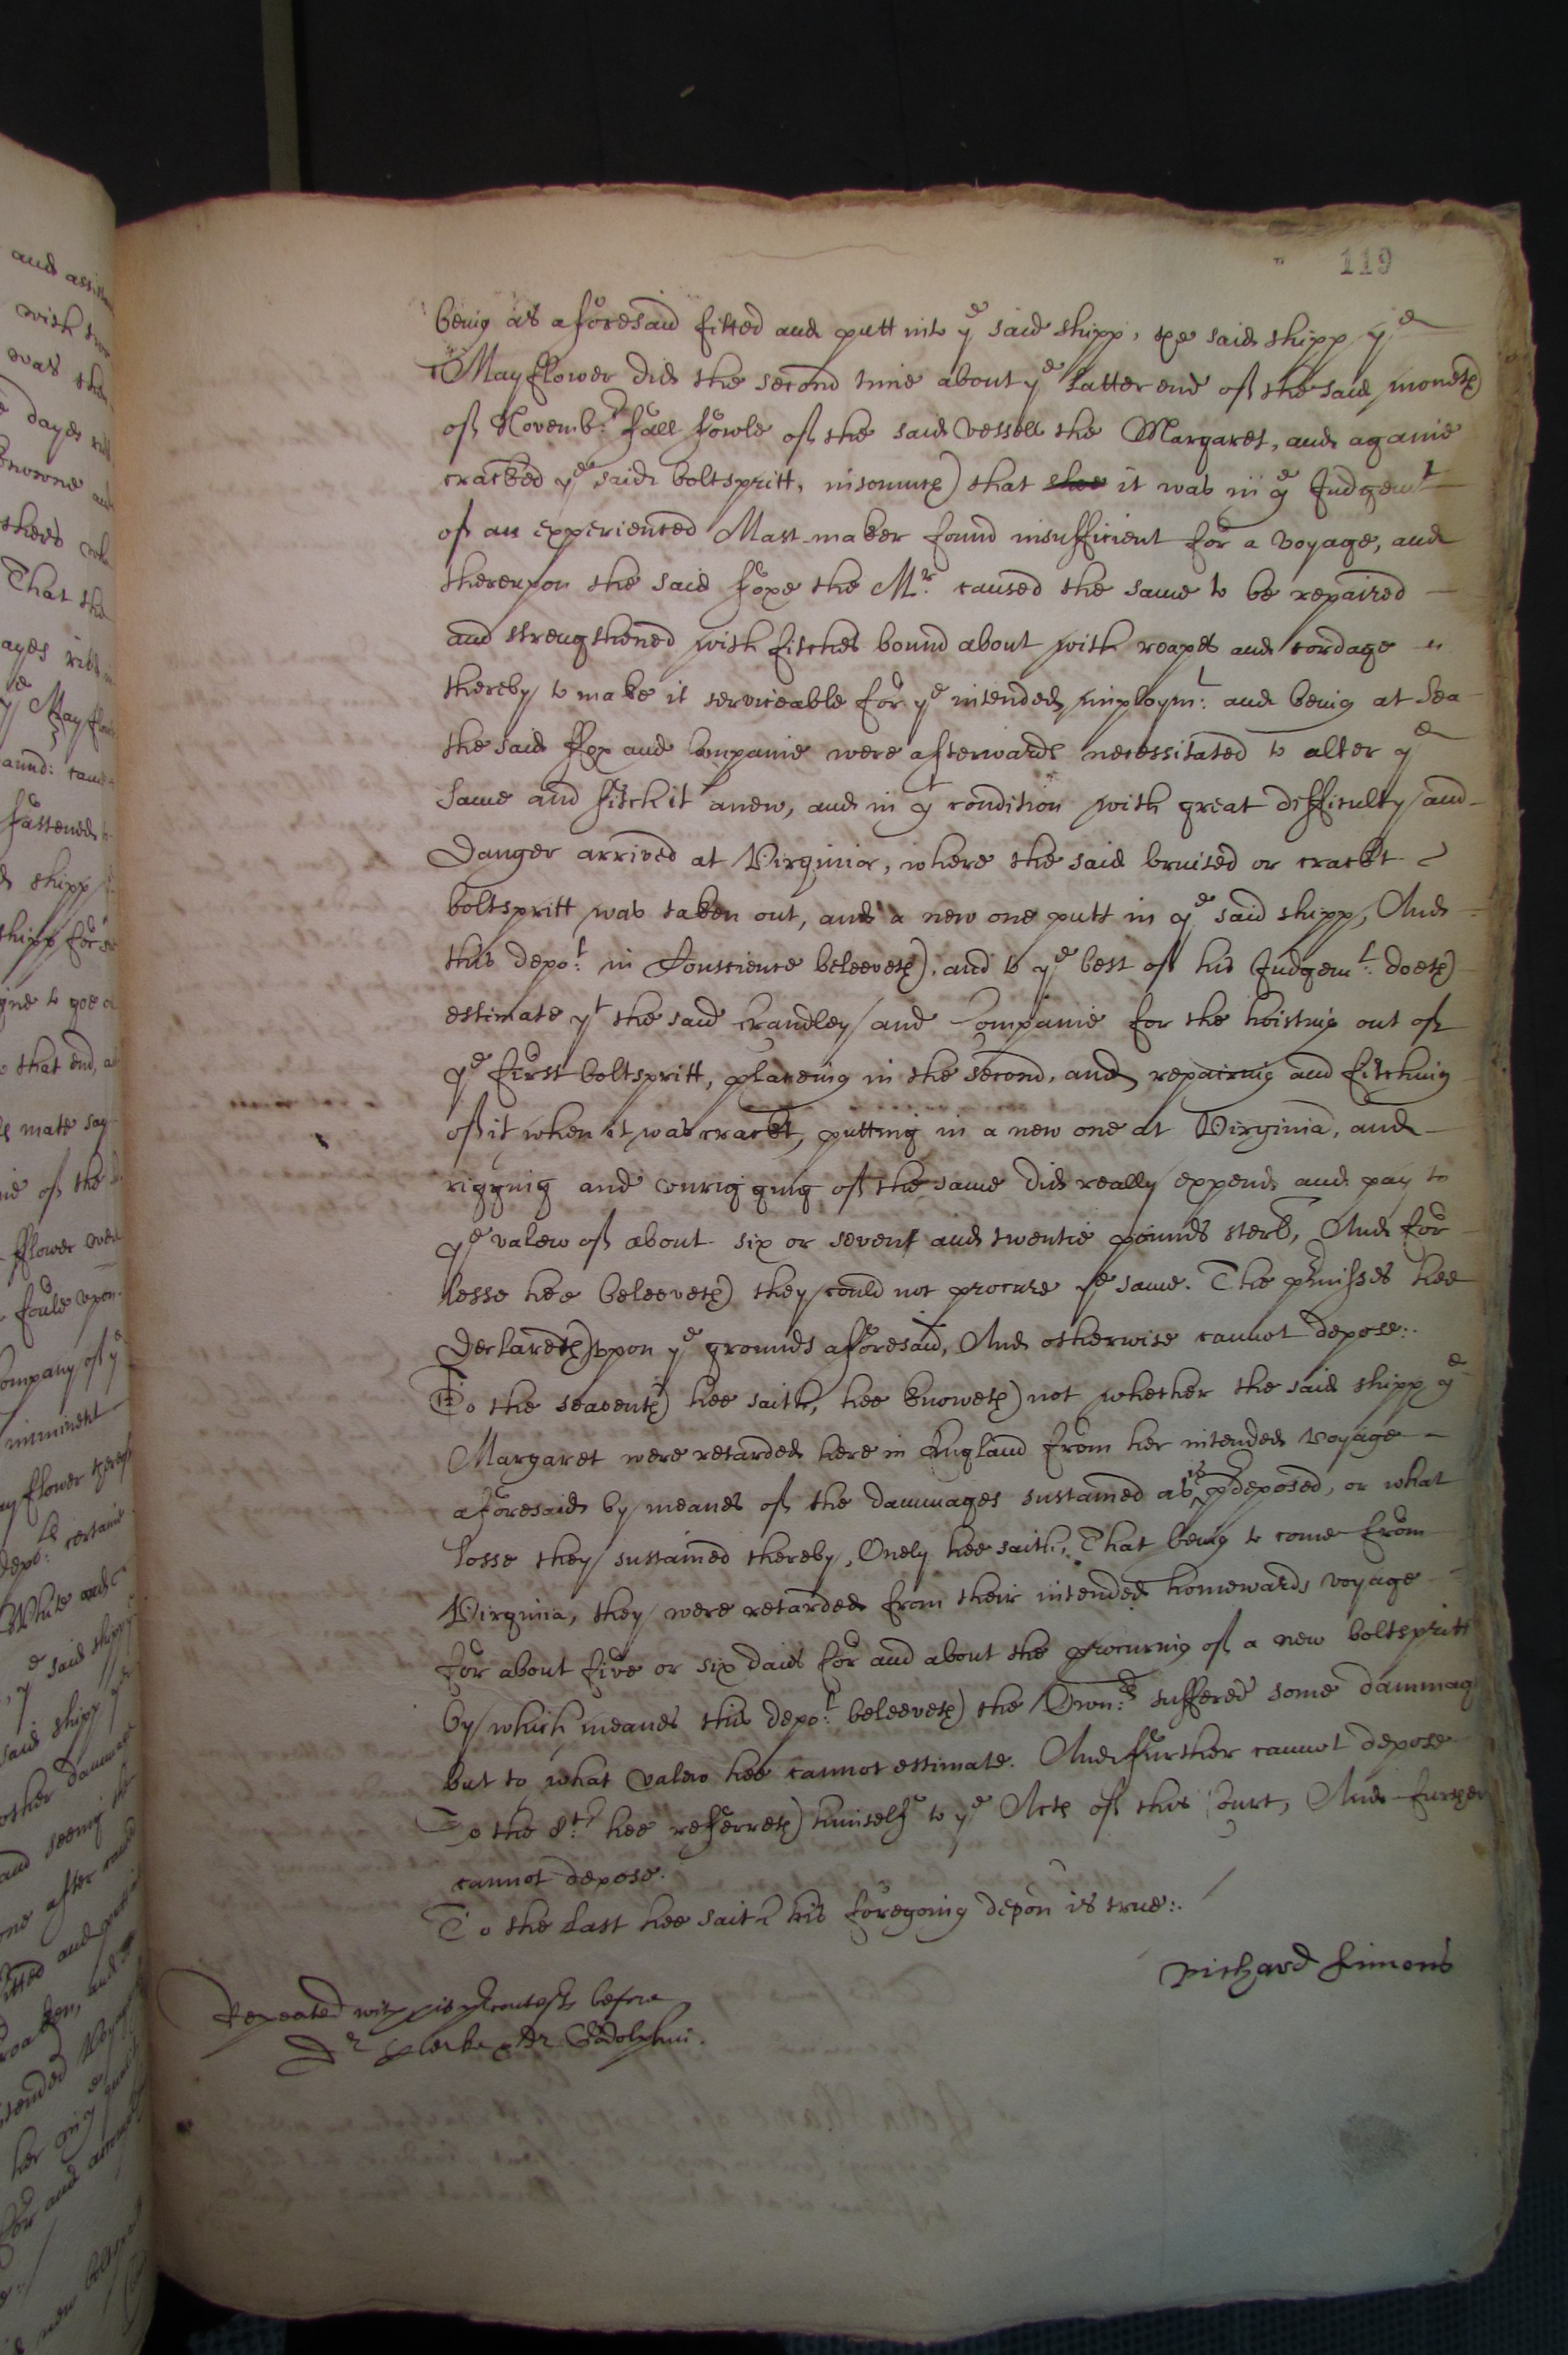 119
being as aforesaid fitted and putt into ye said shipp, the said shipp ye
Mayfflower did the second time about ye latter end of the said moneth
of Novemb:r fall fowle of the said vessell the Margaret, and againe
cracked ye said boltspritt, insomuch that shee it was in ye Judgemt
of an experienced Mast-maker found insufficient for a voyage, and
thereupon the said Foxe the Mr. caused the same to be repaired
and strengthened with fitches bound about with roapes and cordage
thereby to make it serviceable for ye intended imploymt: and being at Sea
the said ffox and Companie were afterwards necessitated to alter ye
same and fitch it anew, and in yt condition with great difficulty and
Danger arrived at Virginia, where the said bruised or crackt
boltspritt was taken out, and a new one putt in ye said shipp, And
this depo:t in Conscience beleeveth, and to ye best of his Judgemt: doeth
estimate yt the said Crandley and Companie for the hoisting out of
ye first boltspritt, placeing in the second, and repairing and fitching
of it when it was crackt, putting in a new one at Virginia, and
rigging and vnrigging of the same did really expend and pay to
ye valew of about six or seven and twentie pounds sterl, And for
lesse hee beleeveth they could not procure ye same. The prmisses hee
Declareth vpon ye grounds afforesaid, And otherwise cannot depose:.
To the seaventh hee saith, hee knoweth not whether the said shipp ye
Margaret were retarded here in England from her intended voyage
aforesaid by meanes of the dammages sustained as is prdeposed, or what
losse they sustained thereby, Onely hee saith, That being to come from
Virginia, they were retarded from their intended homewards voyage
for about five or six daies for and about the procuring of a new boltspritt
by which meanes this depo:t beleeveth the Own:rs suffered some dammag
but to what valew hee cannot estimate. And further cannot depose
To the 8th: hee referreth himself to ye Acts of this Court, And further
cannot depose.
To the last hee saith his foregoing depon is true:.
Richard Simons
Repeated with his before
Dr Clerke Dr Godolphin.